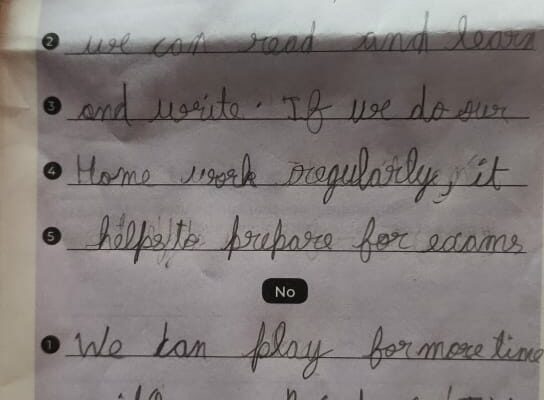 2 we can read and learn
3 and write. If we do our
4 Home work regularly, it
5 helps to prepare for exams
No
1 We can play for more time